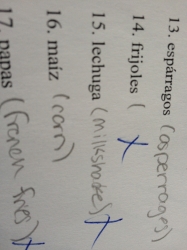 13. espárragos (asperrages)
14. frijoles (
15. lechuga (milkshake)
16. maíz (corn)
17. papas (french fries)